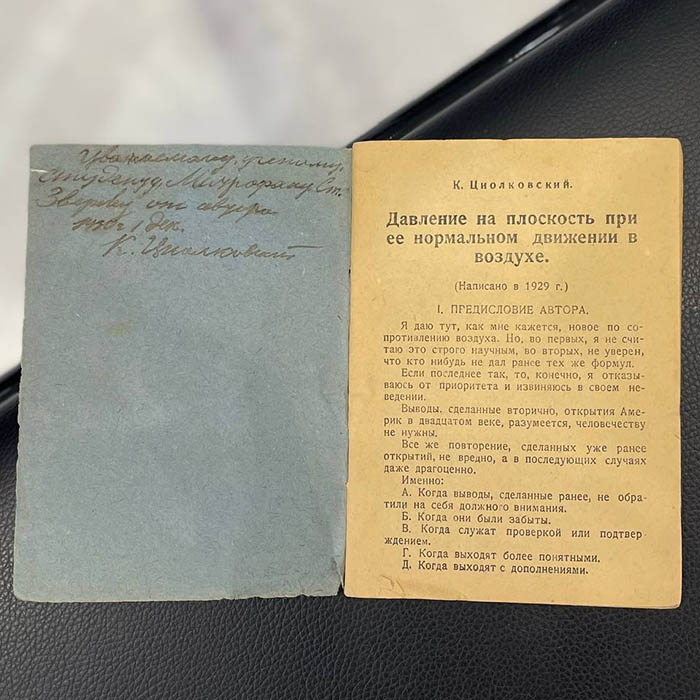 Уважаемому, ученому,
студенту, Митрофану Ст.
Звереву от автора
1930 г 1 дек.
К. Циолковский
К. Циолковский.
Давление на плоскость при
ее нормальном движении в
воздухе.
(Написано в 1929 г.)
I. ПРЕДИСЛОВИЕ АВТОРА.
Я даю тут, как мне кажется, новое по со-
противлению воздуха. Но, во первых, я не счи-
таю это строго научным, во вторых, не уверен,
что кто нибудь не дал ранее тех же формул.
Если последнее так, то, конечно, я отказы-
ваюсь от приоритета и извиняюсь в своем не-
ведении.
Выводы, сделанные вторично, открытия Аме-
рик в двадцатом веке, разумеется, человечеству
не нужны.
Все же повторение, сделанных уже ранее
открытий, не вредно, а в последующих случаях
даже драгоценно.
Именно:
А. Когда выводы, сделанные ранее, не обра-
тили на себя должного внимания.
Б. Когда они были забыты.
В. Когда служат проверкой или подтвер-
ждением.
Г. Когда выходят более понятными.
Д. Когда выходят с дополнениями.